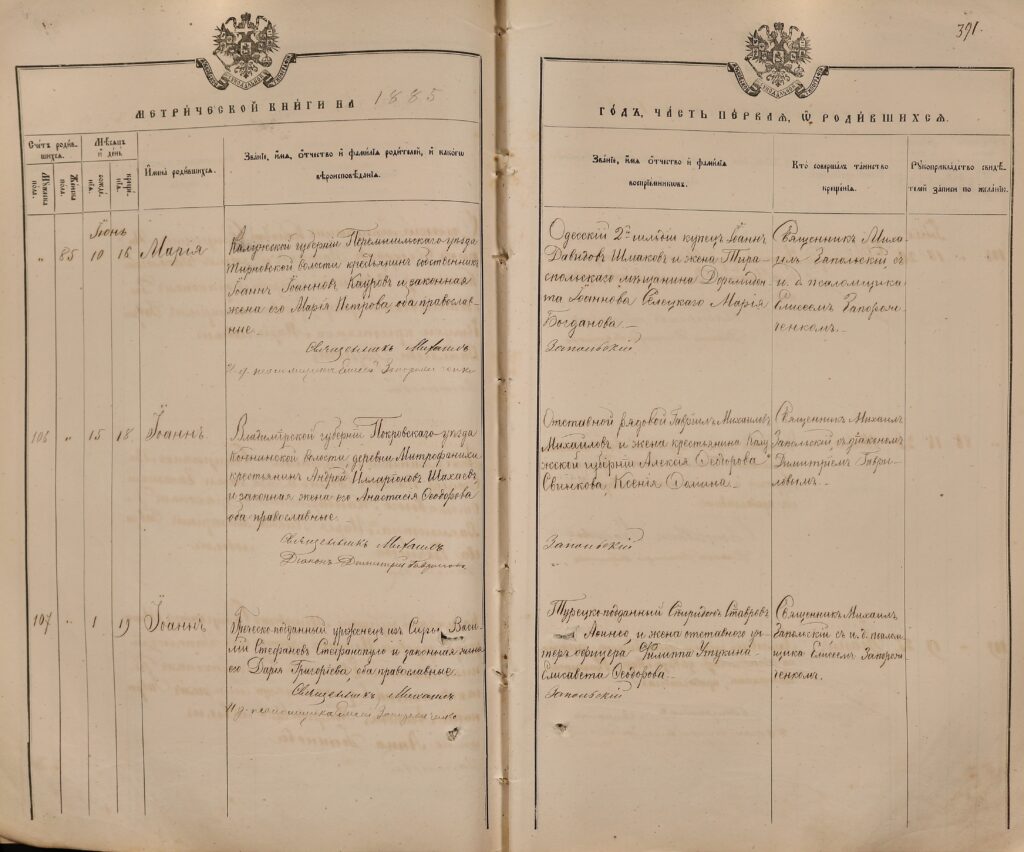 391.
МЕТРИЧЕСКОЙ КНИГИ НА 1885
ГОДЪ, ЧАСТЬ ПЕРВАЯ, Ѿ РОДИВШИХСЯ.
Счетъ родив-
шихся.
Мужеска
пола.
Женска
пола.
Мѣсяцъ
и день
рожде-
нія.
креще-
нія.
Имена родившихся.
Званіе, имя, отчество и фамилія родителей, и какого
вѣроисповѣданія.
Званіе, имя отчество и фамилія
воспріемниковъ.
Кто совершалъ таинство
крещенія.
Рукоприкладство свидѣ-
телей записи по желанію.
Іюнь
" 85 10 16 Марія
Калужской губерніи Перемышльскаго уѣзда
волости крестьянинъ собственникъ
Іоаннъ Іоанновъ Кауровъ и законная
жена его Марія Петрова, оба православ-
ные.
Священникъ Михаилъ
И. д. псаломщика Елисей
Одесскій 2й гильдіи купецъ Іоаннъ
Давидовъ Шпаковъ и жена Тира-
спольскаго мѣщанина Доримедон-
та Іоаннова Сѣлецкаго Марія
Богданова.
Запольскій
Священникъ Миха-
илъ Запольскій, съ
и. д. псаломщика
Елисеемъ Запорож-
ченкомъ.
106 " 15 18 Іоаннъ
Владимірской губерніи Покровскаго уѣзда
волости, деревни Митрофанихи
крестьянинъ Андрей Илларіоновъ Шахаевъ
и законная жена его Анастасія Ѳеодорова
оба православные.
Священникъ Михаилъ
Діаконъ Димитрій Гавриловъ
Отставной рядовой Гавріилъ Михаиловъ
Михайловъ и жена крестьянина Калу-
жской губерніи Алексія Ѳеодорова
Свинкова, Ксенія Домина.
Запольскій
Священникъ Михаилъ
Запольскій, съ діакономъ
Димитріемъ Гаври-
ловымъ.
107 " 1 19 Іоаннъ
Греческо-подданный уроженецъ изъ Сиры, Васи-
лій Стефановъ Стефанопуло и законная жена
его Дарія Григоріева оба православные.
Священникъ Михаилъ
И. д. псаломщика Елисей
Турецко-подданный Спиридонъ Ставровъ
и жена отставного ун-
теръ офицера Филиппа
Елисавета Ѳеодорова.
Запольскій
Священникъ Михаилъ
Запольскій съ и. д. псалом-
щика Елисеемъ Запорож-
ченкомъ.